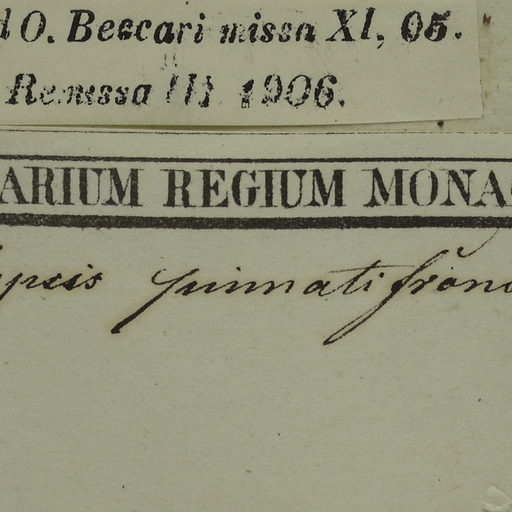 d O. Beccari missa XI, 05.
Remissa III 1906.
ARIUM REGIUM MONA
ypsis pinnatifrons